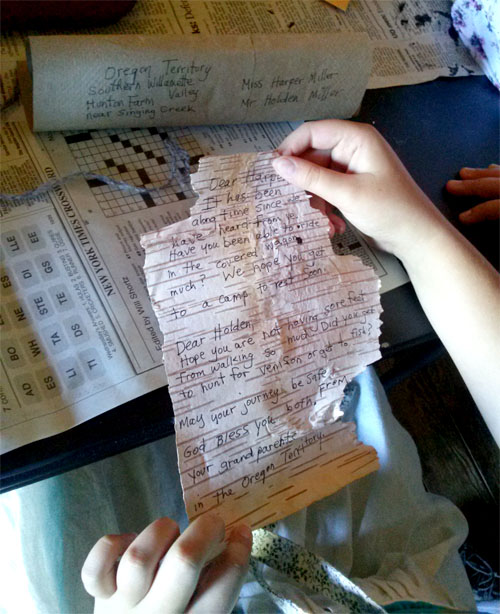 Oregon Territory
Southern Willamette
Valley
Honton Farm
near Singing Creek
Miss Harper Miller
Mr Holden Miller
Dear Harper
It has been
along time since we
have heard from you
Have you been able to ride
in the covered wagon
much? We hope you get
to a camp to rest soon.
Dear Holden,
Hope you are not having sore feet
from walking so much. Did you get
to hunt for venison or get to fish?
May your journey be safe.
God Bless you both. From
your grandparents
in the Oregon Territory.
NEW YORK TIMES CROSSWORD
Edited by Will Shortz
7 LITTLE
LLE
EE
DI
GS
TA
STE
ES
DS
TE
NE
BO
WH
AD
TI